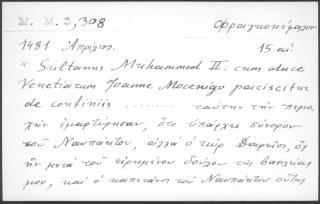 M. M. 3, 308
Φραγκοκέφαλον
1481 Απρίλιος. 15. αἰ.
" Sultanus Muhammed II. cum duce
Venetiarum Joanne Mocenigo paciscitur
de confiniis ........ ταύτην τὴν περιο-
χὴν ἐμαρτύρησαν, ὅτι ὑπάρχει σύνορον
τοῦ Ναυπάκτου, ἀλλὰ ὁ κὺρ
ἦν μετὰ τοῦ εἰρημένου δούλου τῆς βασιλείας
μου, καὶ ὁ καπετάνος τοῦ Ναυπάκτου οὕτως